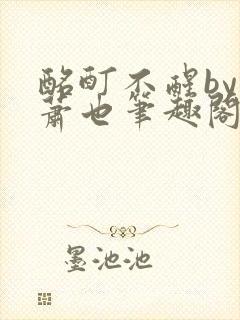 酩酊不醒by
萧也笔趣阁
墨池池